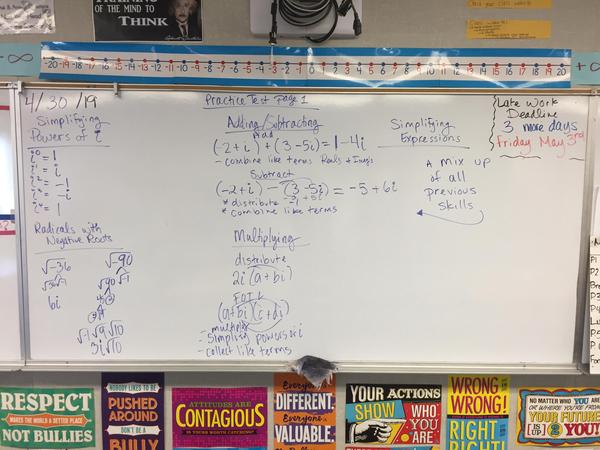 TRAINING
OF THE MIND TO
THINK
-20 -19 -18 -17 -16 -15 -14 -13 -12 -11 -10 -9 -8 -7 -6 -5 -4 -3 -2 -1 0 1 2 3 4 5 6 7 8 9 10 11 12 13 14 15 16 17 18 19 20
-∞
+∞
4/30/19
Practice Test Page 1
Simplifying
Powers of i
i⁰ = 1
i¹ = i
i² = -1
i³ = -i
i⁴ = 1
Radicals with
Negative Roots
√-36
√36 √-1
6i
√-90
√90 √-1
√-1 √9 √10
3i√10
Adding/Subtracting
Add
(-2+i) + (3-5i) = 1-4i
- combine like terms Reals & Imag's
Subtract
(-2+i) - (3-5i) = -5+6i
-3+5i
* distribute -1
* combine like terms
Multiplying
distribute
2i(a+bi)
FOIL
(a+bi)(c+di)
- multiply
- simplify powers of i
- collect like terms
Simplifying
Expressions
A mix up
of all
previous
skills
Late Work
Deadline
3 more days
Friday May 3rd
RESPECT
MAKES THE WORLD A BETTER PLACE
NOT BULLIES
NOBODY LIKES TO BE
PUSHED
AROUND
DON'T BE A
BULLY
ATTITUDES ARE
CONTAGIOUS
IS YOURS WORTH CATCHING?
Everyone is
DIFFERENT.
Everyone is
VALUABLE.
YOUR ACTIONS
SHOW
WHO
YOU
ARE
WRONG IS
WRONG!
RIGHT
RIGHT!
NO MATTER WHO YOU ARE
OR WHERE YOU'RE FROM
YOUR FUTURE
IS UP 2 YOU!